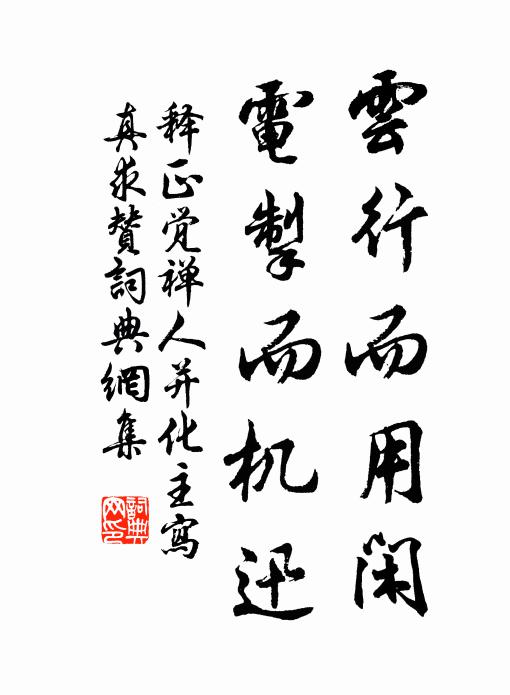 雲行而用闲
電掣而机迅
释正觉禅人并化主寫
真求赞詞典網集
詞典網印